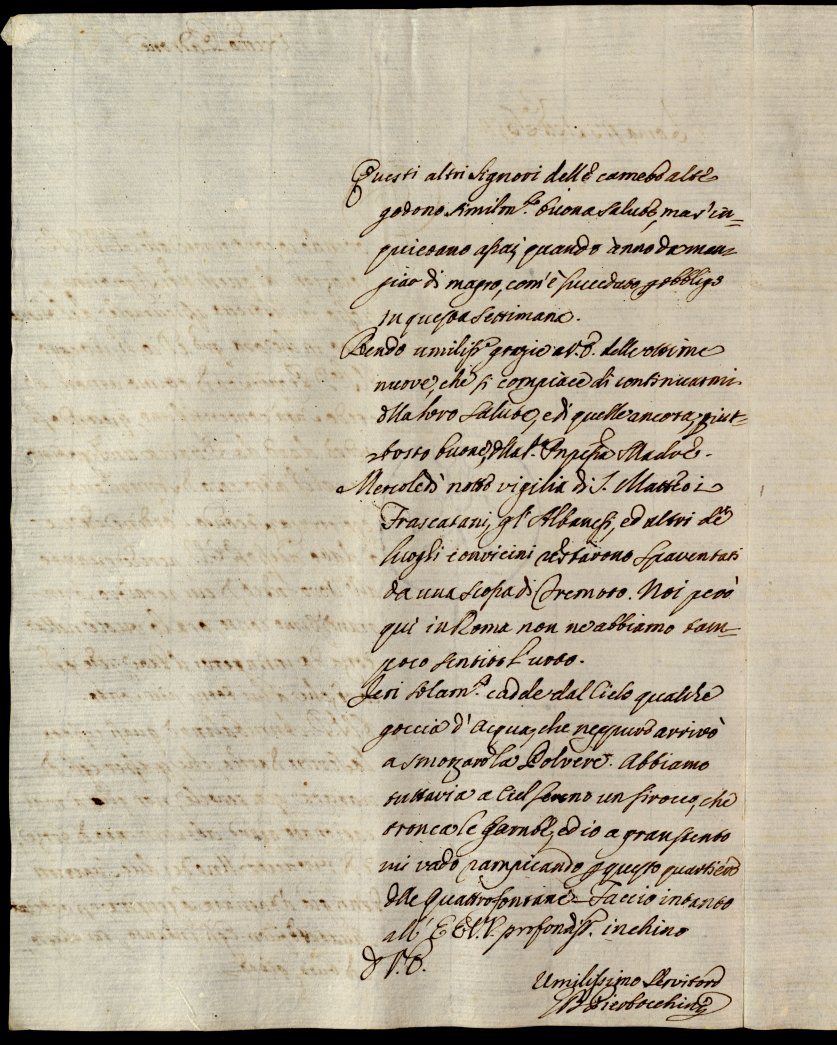 Questi altri Signori delle camerate
godono similm.te buona salute, ma s'in=
quietano assai, quando ànno da man=
giar di magro, com'è succeduto p obbligo
in questa settimana.
Rendo umiliss.e grazie a V.E. delle ottime
nuove, che si compiace di continuarmi
della loro salute, e di quelle ancora piut=
tosto buone della S. Madre.
Mercoledì notte vigilia di S. Matteo i
Frascatani, gl'Albanesi, ed altri de
luoghi convicini restarono spaventati
da una scossa di Tremoto. Noi però
quì in Roma non ne abbiamo tam=
poco sentito l'urto.
Jeri solam.te cadde dal Cielo qualche
goccia d'acqua, che neppure arrivò
a smorzare la Polvere. Abbiamo
tuttavia a Ciel sereno un sirocco, che
tronca le gambe, ed io a gran stento
mi vado rampicando p questo quartiere
delle Quattrofontane. Faccio intanto
all' EE.VV. profondiss. inchino
D V.E.
Umilissimo Servitore